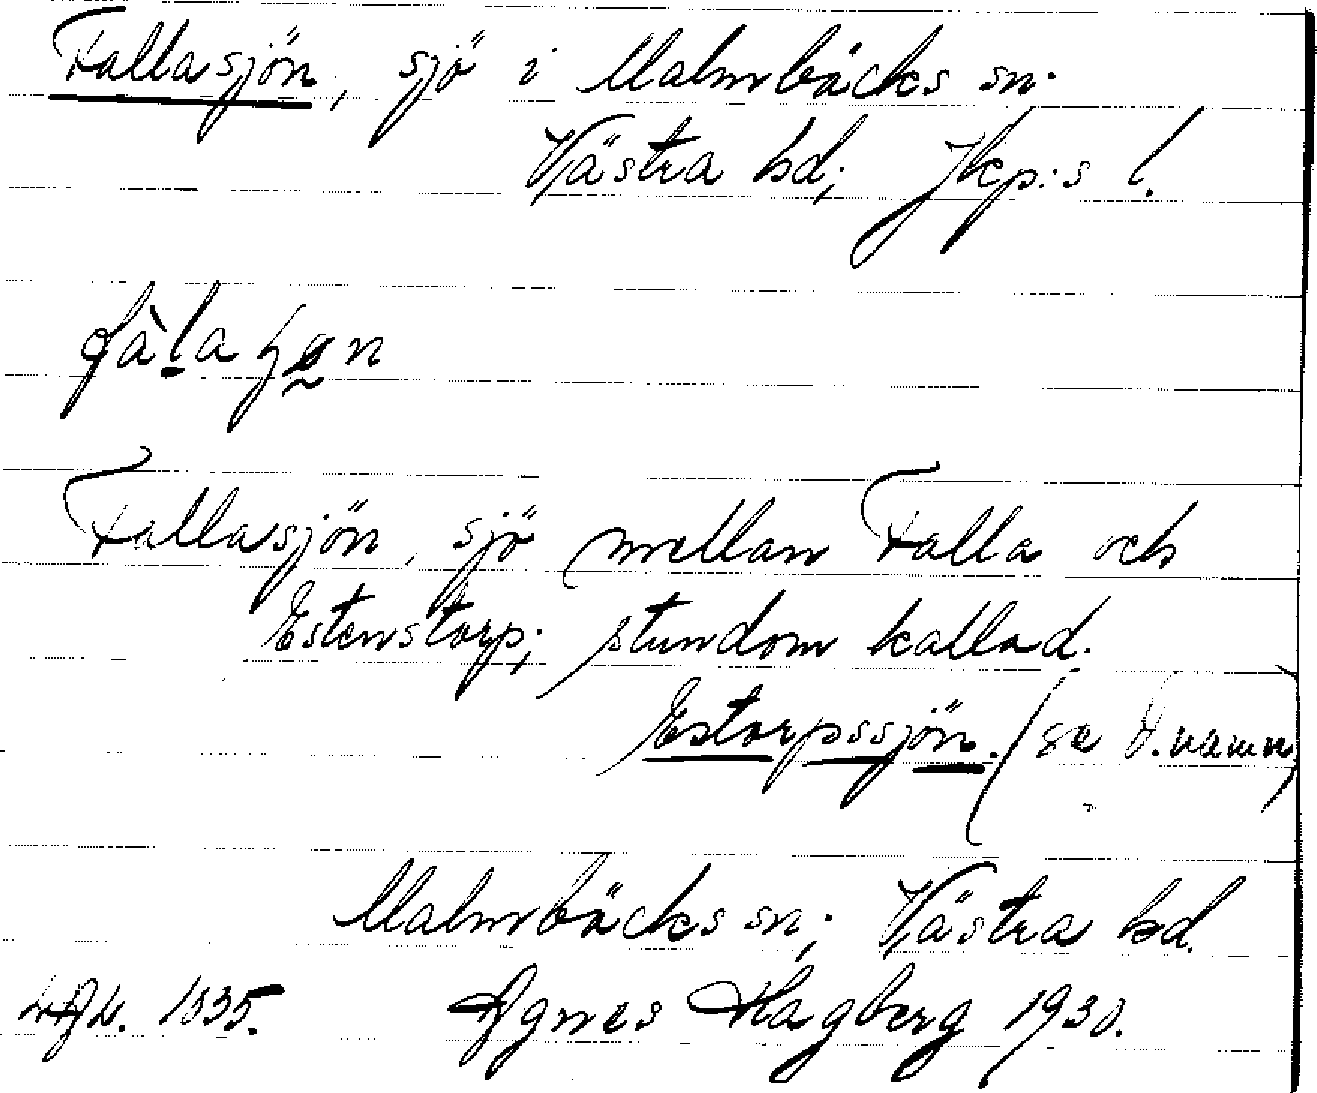 Fallasjön, sjö i Malmbäcks sn.
Västra hd; Jkp:s l.
Fallasjön, sjö mellan Falla och
Estenstorp; stundom kallad.
Estorpssjön. (se d. namn)
Malmbäcks sn; Västra hd.
1835. Agnes Hagberg 1930.